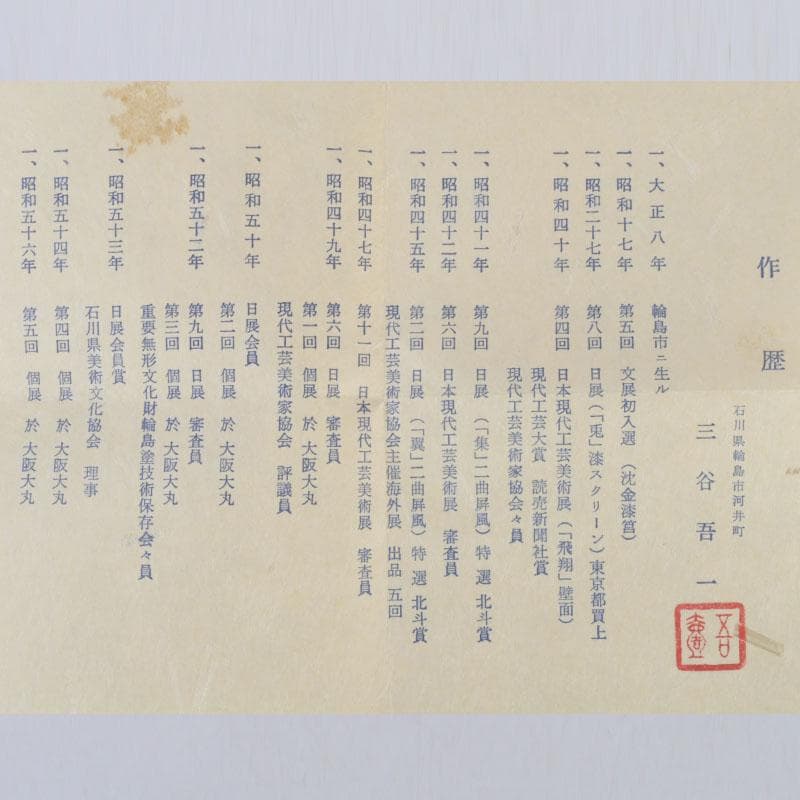 作歴
石川県輪島市河井町
三谷吾一
吾壹
一、大正八年 輪島市ニ生ル
一、昭和十七年 第五回 文展初入選 (沈金漆筥)
一、昭和二十七年 第八回 日展(「兎」漆スクリーン)東京都買上
一、昭和四十年 第四回 日本現代工芸美術展(「飛翔」壁面)
現代工芸大賞 読売新聞社賞
現代工芸美術家協会々員
一、昭和四十一年 第九回 日展 (「集」二曲屏風) 特選 北斗賞
一、昭和四十二年 第六回 日本現代工芸美術展 審査員
一、昭和四十五年 第二回 日展 (「翼」二曲屏風) 特選 北斗賞
現代工芸美術家協会主催海外展 出品 五回
一、昭和四十七年 第十一回 日本現代工芸美術展 審査員
一、昭和四十九年 第六回 日展 審査員
第一回 個展 於 大阪大丸
現代工芸美術家協会 評議員
一、昭和五十年 日展会員
第二回 個展 於 大阪大丸
一、昭和五十二年 第九回 日展 審査員
第三回 個展 於 大阪大丸
重要無形文化財輪島塗技術保存会々員
一、昭和五十三年 日展会員賞
石川県美術文化協会 理事
一、昭和五十四年 第四回 個展 於 大阪大丸
一、昭和五十六年 第五回 個展 於 大阪大丸